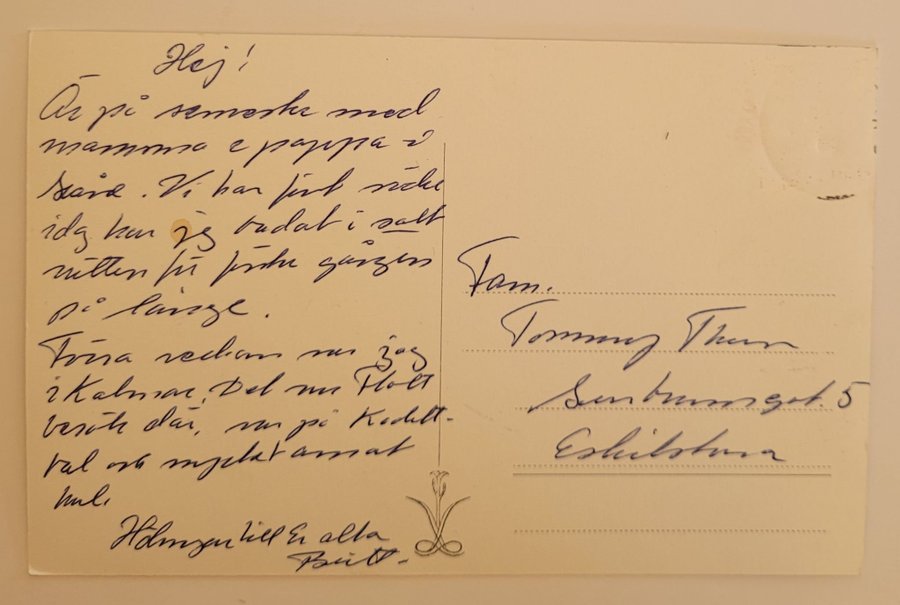 Hej!
Är på semester med
mamma o pappa i
Vi har fint väder
idag har jag badat i salt
vatten för första gången
på länge.
Förra veckan var jag
i Kalmar. Det var Flott
besök där, var på Kadett-
bal och mycket annat
kul.
Hälsningar till Er alla
Britt.
Fam.
Tommy Thun
5
Eskilstuna